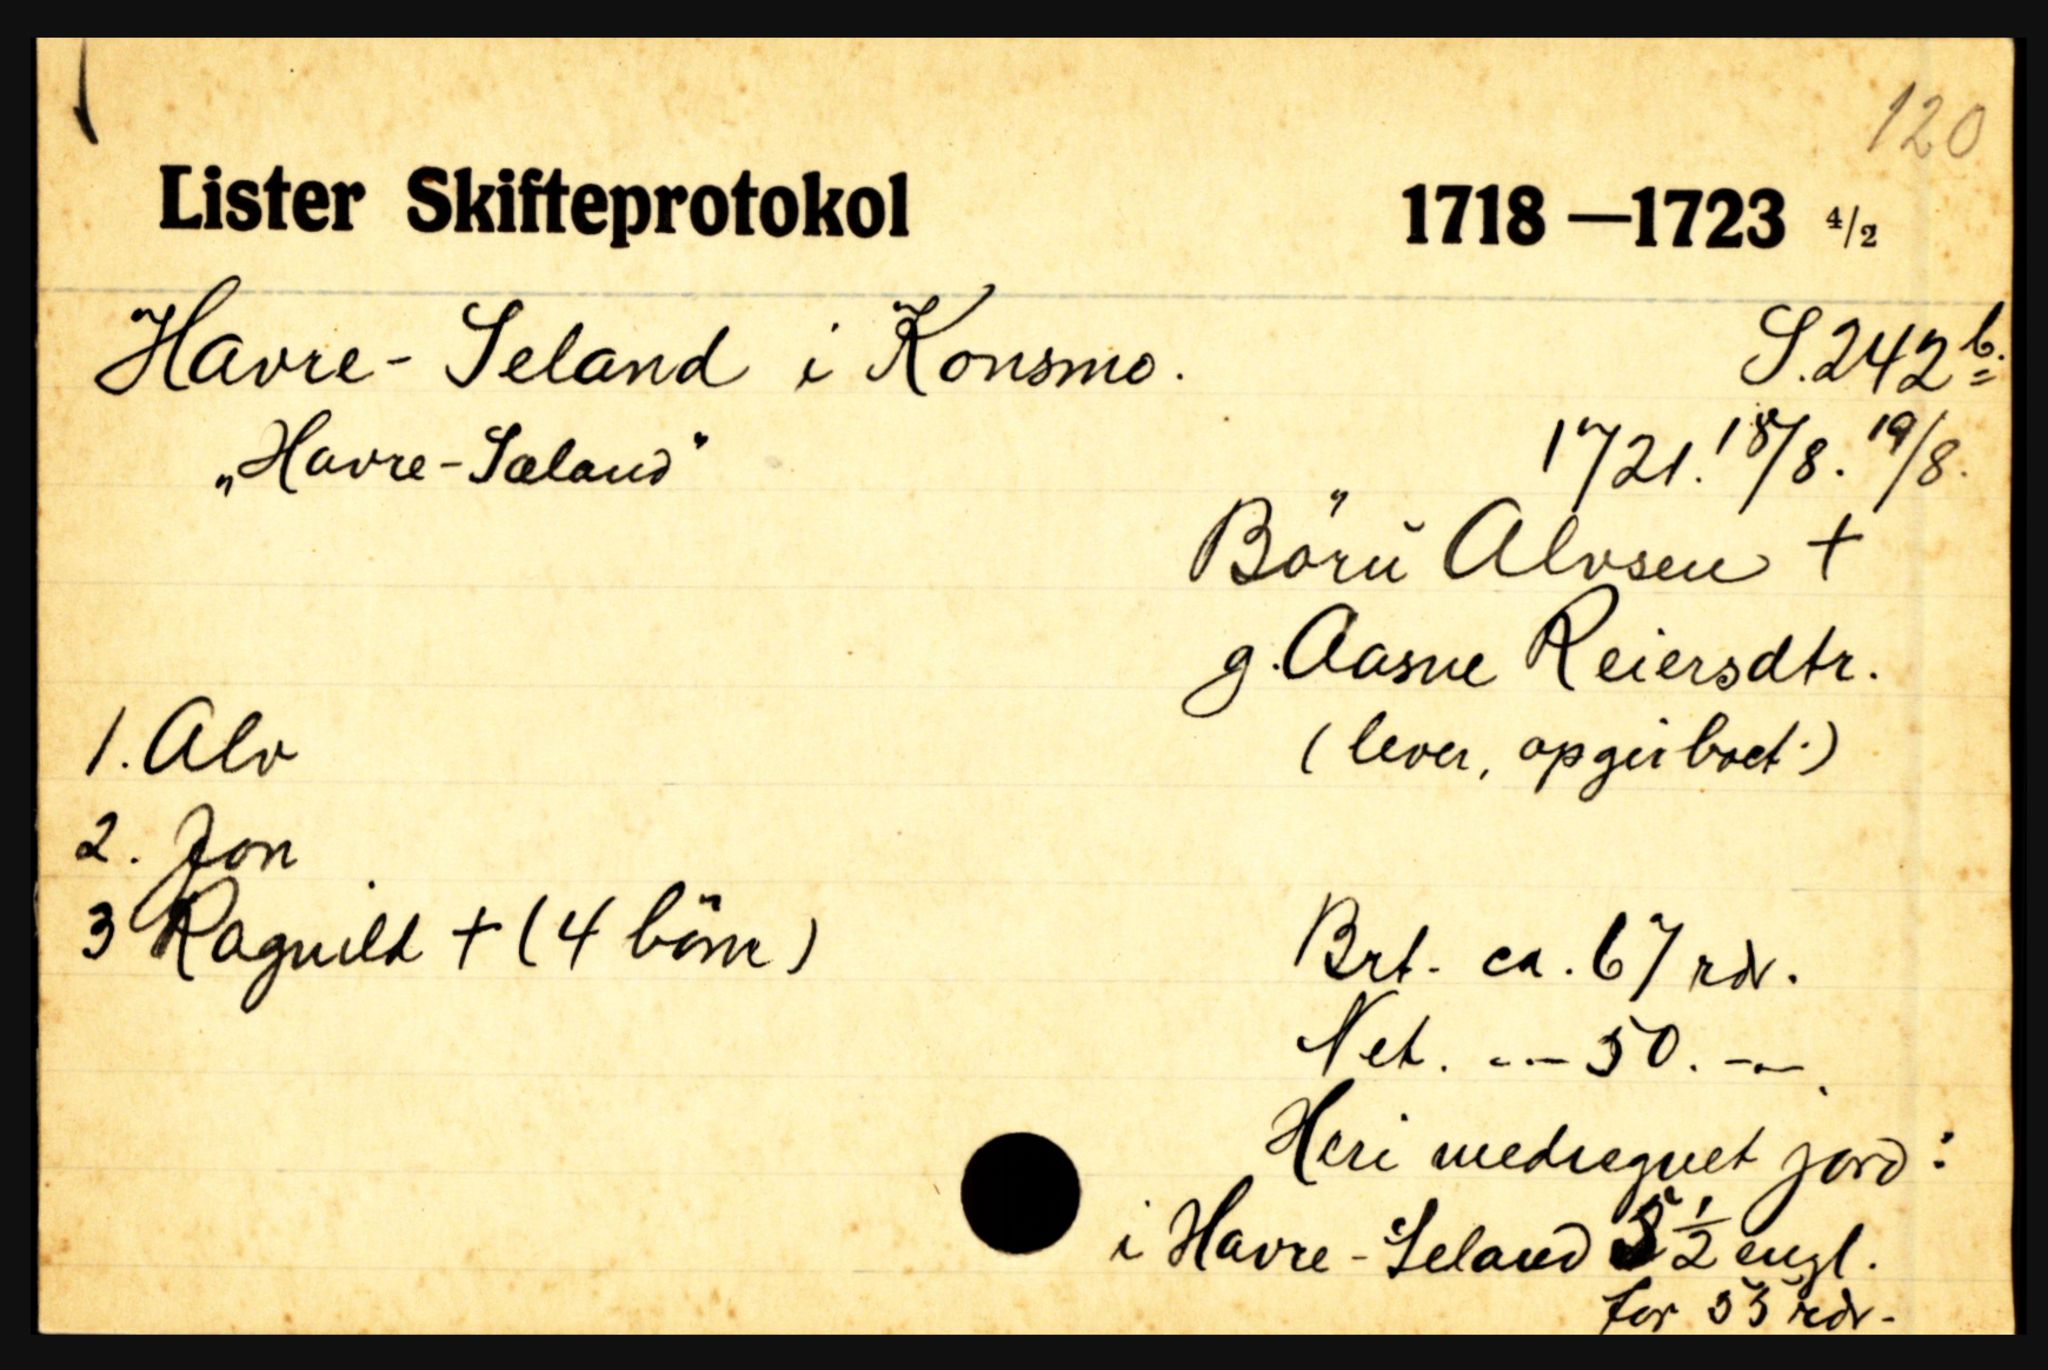 120
Lister Skifteprotokol 1718—1723 4/2
Havre-Seland i Konsmo. S.242 b.
„Havre-Sæland" 1721. 18/8. 19/8.
Börŭ Alvsen +
g. Aasne Reiersdtr.
1. Alv (lever, opgir boet.)
2. Jon
3 Ragnild + (4 börn) Brt. ca. 67 rdr.
Net. -.- 50. -.-.
Heri medregnet jord:
i Havre-Seland 5 1/2 engl.
for 55 rdr.